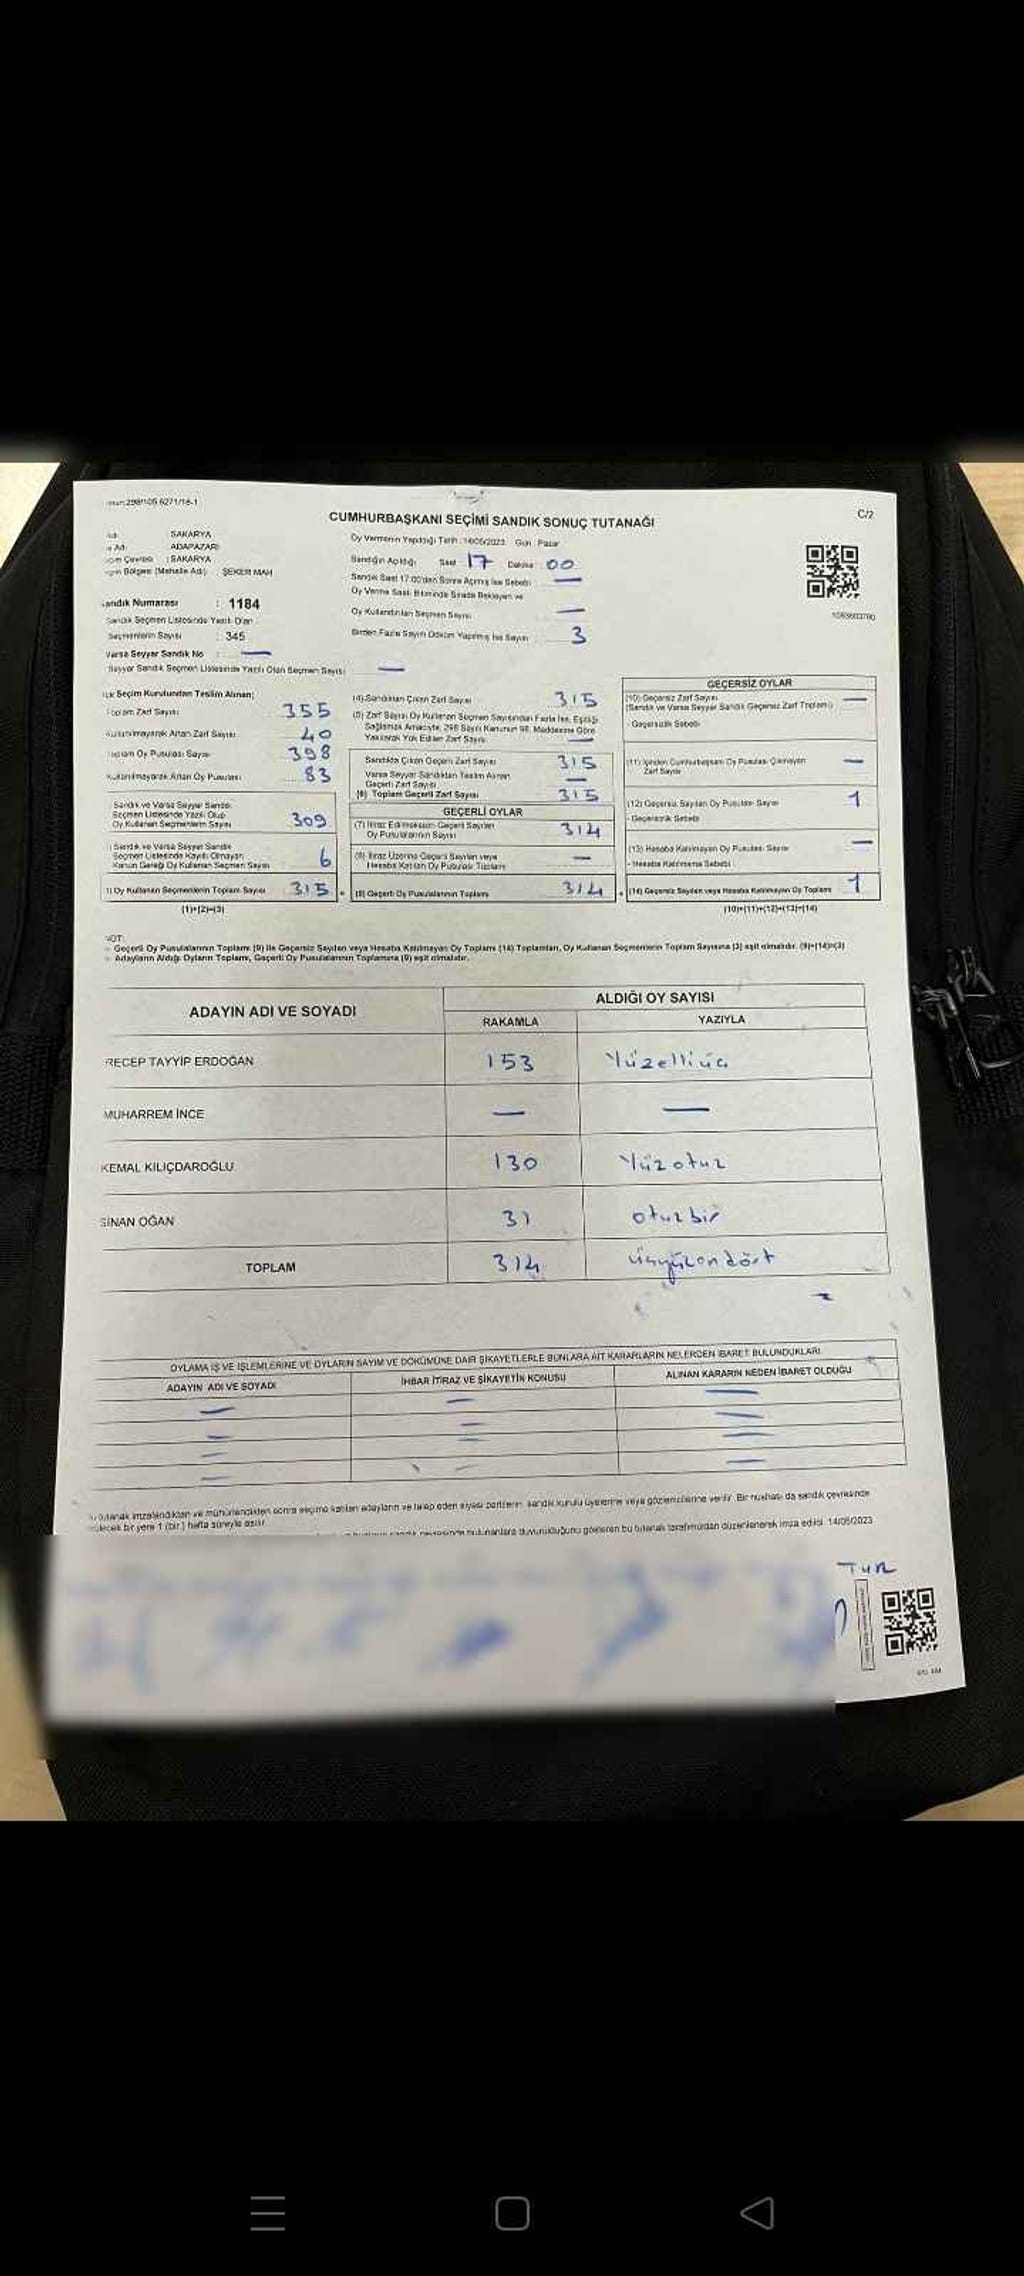 298/105 6271/18-1
C/2
CUMHURBAŞKANI SEÇİMİ SANDIK SONUÇ TUTANAĞI
SAKARYA
ADAPAZARI
: SAKARYA
Bölgesi (Mahalle Adı) : ŞEKER MAH
Oy Vermenin Yapıldığı Tarih : 14/05/2023 Gün : Pazar
Sandığın Açıldığı Saat 17 Dakika 00
Sandık Saat 17.00'den Sonra Açılmış İse Sebebi —
Oy Verme Saati Bitiminde Sırada Bekleyen ve
Oy Kullandırılan Seçmen Sayısı —
Birden Fazla Sayım Döküm Yapılmış İse Sayısı 3
Sandık Numarası : 1184
Sandık Seçmen Listesinde Yazılı Olan
Seçmenlerin Sayısı : 345
Varsa Seyyar Sandık No : —
Seyyar Sandık Seçmen Listesinde Yazılı Olan Seçmen Sayısı : —
Seçim Kurulundan Teslim Alınan;
Toplam Zarf Sayısı 355
Kullanılmayarak Artan Zarf Sayısı 40
Toplam Oy Pusulası Sayısı 398
Kullanılmayarak Artan Oy Pusulası 83
Sandık ve Varsa Seyyar Sandık
Seçmen Listesinde Yazılı Olup
Oy Kullanan Seçmenlerin Sayısı 309
Sandık ve Varsa Seyyar Sandık
Seçmen Listesinde Kayıtlı Olmayan
Kanun Gereği Oy Kullanan Seçmen Sayısı 6
Oy Kullanan Seçmenlerin Toplam Sayısı 315
(1)+(2)=(3)
(4) Sandıktan Çıkan Zarf Sayısı 315
(5) Zarf Sayısı Oy Kullanan Seçmen Sayısından Fazla İse, Eşitliği
Sağlamak Amacıyla, 298 Sayılı Kanunun 98. Maddesine Göre
Yakılarak Yok Edilen Zarf Sayısı —
Sandıkta Çıkan Geçerli Zarf Sayısı 315
Varsa Seyyar Sandıktan Teslim Alınan
Geçerli Zarf Sayısı —
(6) Toplam Geçerli Zarf Sayısı 315
GEÇERLİ OYLAR
(7) İtiraz Edilmeksizin Geçerli Sayılan
Oy Pusulalarının Sayısı 314
(8) İtiraz Üzerine Geçerli Sayılan veya
Hesaba Katılan Oy Pusulası Toplamı —
(9) Geçerli Oy Pusulalarının Toplamı 314
GEÇERSİZ OYLAR
(10) Geçersiz Zarf Sayısı —
(Sandık ve Varsa Seyyar Sandık Geçersiz Zarf Toplamı)
- Geçersizlik Sebebi
(11) İçinden Cumhurbaşkanı Oy Pusulası Çıkmayan
Zarf Sayısı —
(12) Geçersiz Sayılan Oy Pusulası Sayısı 1
- Geçersizlik Sebebi
(13) Hesaba Katılmayan Oy Pusulası Sayısı —
- Hesaba Katılmama Sebebi
(14) Geçersiz Sayılan veya Hesaba Katılmayan Oy Toplamı 1
(10)+(11)+(12)+(13)=(14)
NOT:
Geçerli Oy Pusulalarının Toplamı (9) ile Geçersiz Sayılan veya Hesaba Katılmayan Oy Toplamı (14) Toplamları, Oy Kullanan Seçmenlerin Toplam Sayısına (3) eşit olmalıdır. (9)+(14)=(3)
Adayların Aldığı Oyların Toplamı, Geçerli Oy Pusulalarının Toplamına (9) eşit olmalıdır.
ADAYIN ADI VE SOYADI
ALDIĞI OY SAYISI
RAKAMLA YAZIYLA
RECEP TAYYİP ERDOĞAN 153 Yüzelliüç
MUHARREM İNCE — —
KEMAL KILIÇDAROĞLU 130 Yüzotuz
SİNAN OĞAN 31 otuzbir
TOPLAM 314 üçyüzondört
OYLAMA İŞ VE İŞLEMLERİNE VE OYLARIN SAYIM VE DÖKÜMÜNE DAİR ŞİKAYETLERLE BUNLARA AİT KARARLARIN NELERDEN İBARET BULUNDUKLARI
ADAYIN ADI VE SOYADI İHBAR İTİRAZ VE ŞİKAYETİN KONUSU ALINAN KARARIN NEDEN İBARET OLDUĞU
tutanak imzalandıktan ve mühürlendikten sonra seçime katılan adayların ve talep eden siyasi partilerin sandık kurulu üyelerine veya gözlemcilerine verilir. Bir nüshası da sandık çevresinde
bir yere 1 (bir) hafta süreyle asılır.
çevresinde bulunanlara duyurulduğunu gösteren bu tutanak tarafımızdan düzenlenerek imza edildi. 14/05/2023